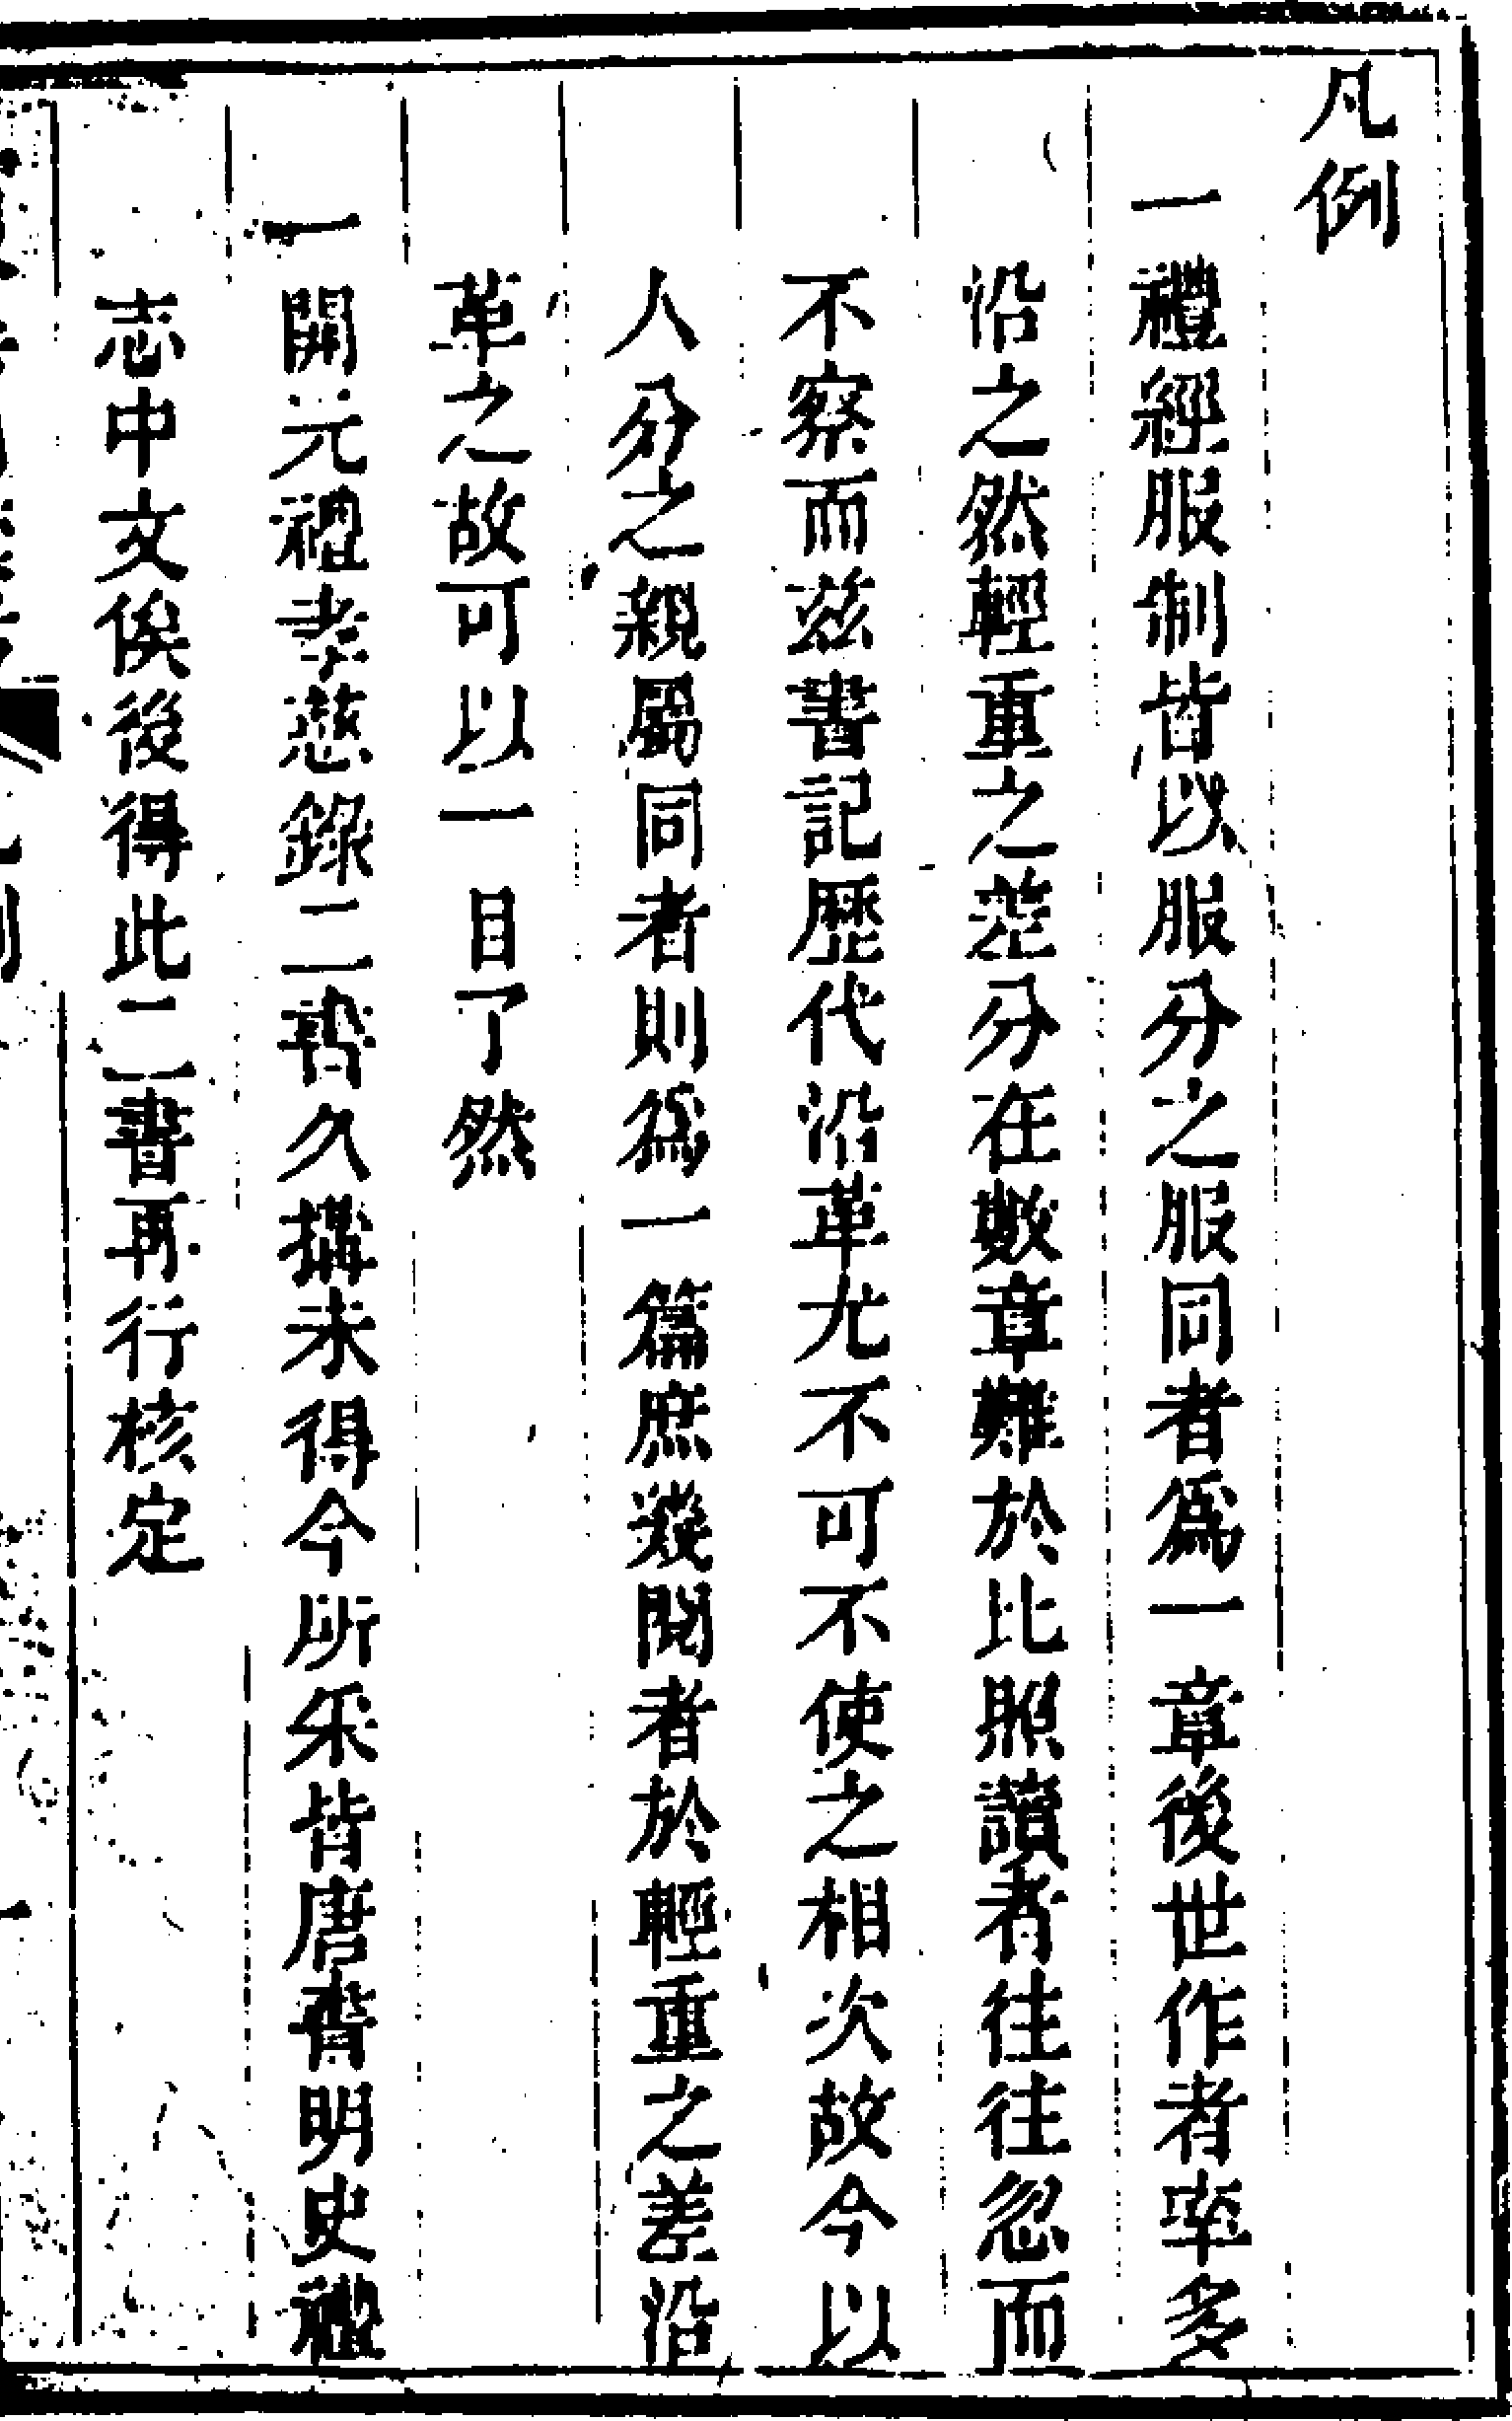 凡例
一禮經服制皆以服分之服同者爲一章後世作者率多
沿之然輕重之差分在數章難於比照讀者往往忽而
不察而茲書記歷代沿革尤不可不使之相次故今以
人分之親屬同者則爲一篇庶幾閱者於輕重之差沿
革之故可以一目了然
一開元禮孝慈錄二書久搆未得今所采皆唐書明史禮
志中文俟後得此二書再行核定